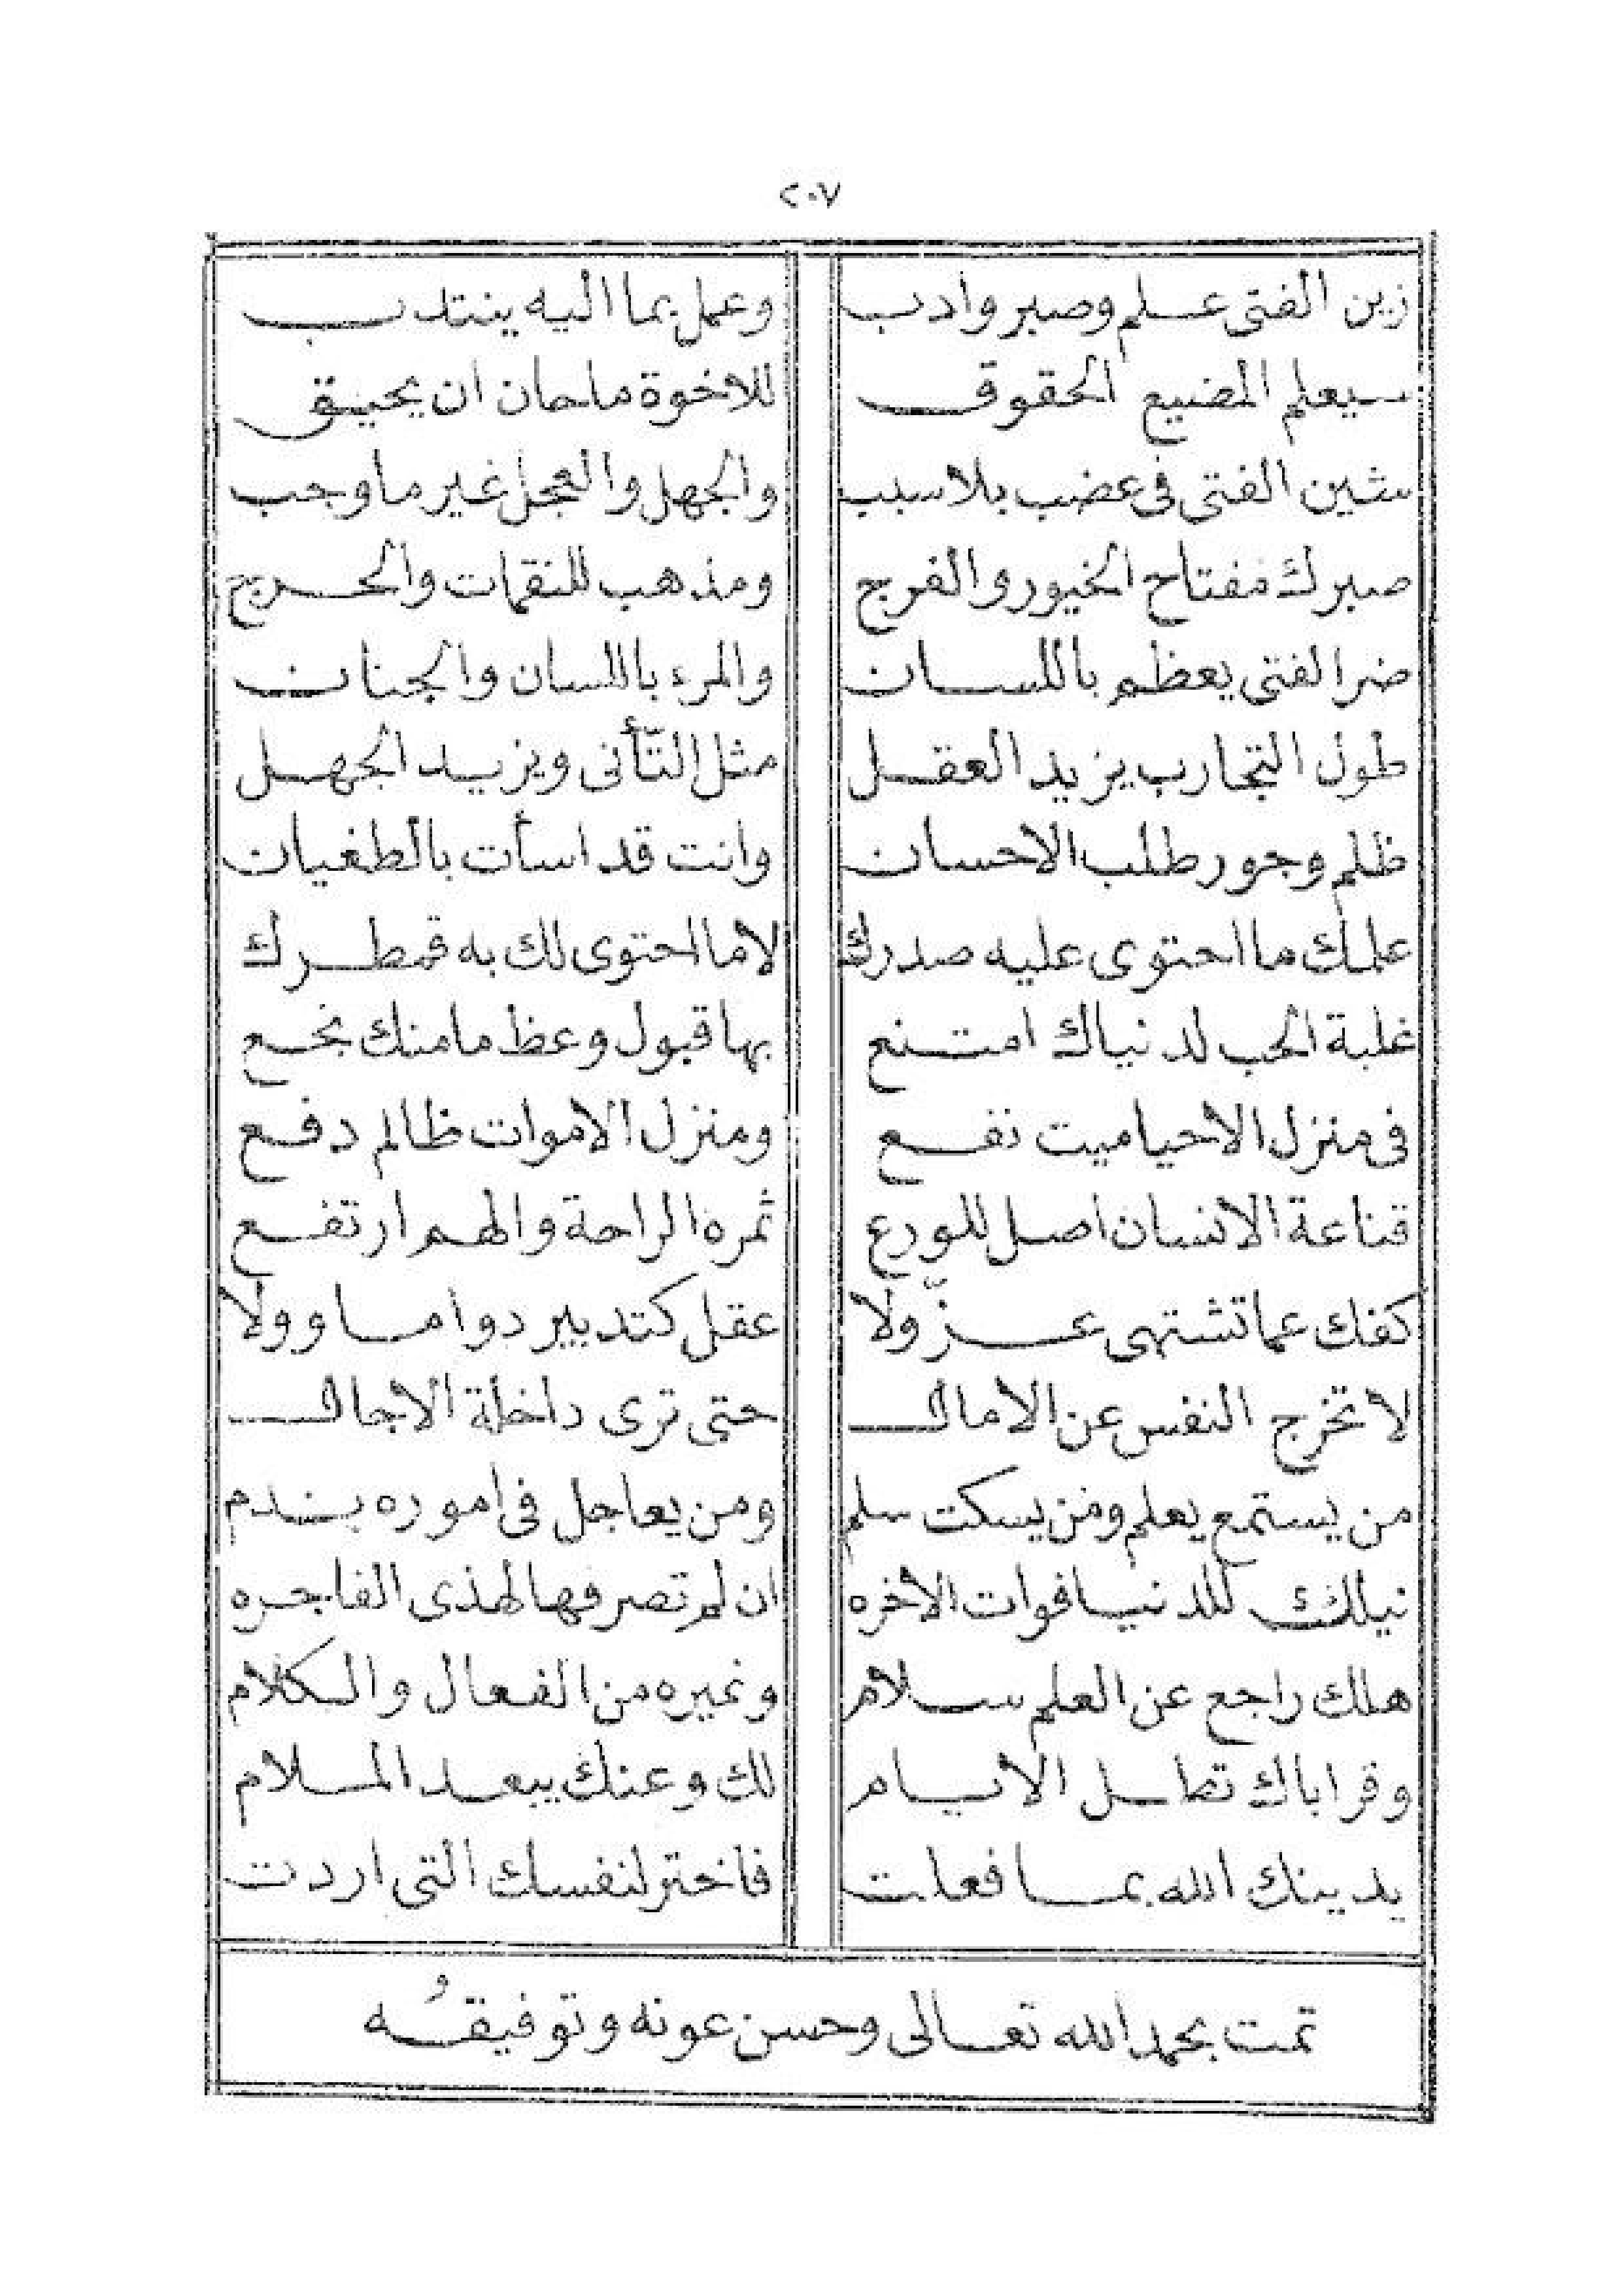 ٢٠٧
زين الفتى عـلم وصبر وادب وعمل بما اليه ينتدب
سيعلم المضيع الحقوق للاخوة ماحان ان يحيق
شين الفتى فى عضب بلاسبب والجهل والعجل غير ماوجب
صبرك مفتاح الخيور والفرج ومذهب للنقمات والحرج
ضر الفتى يعظم باللسان والمرء باللسان والجنان
طول التجارب يزيد العقل مثل التّأنى ويزيد الجهل
ظلم وجور طلب الاحسان وانت قد اسأت بالطغيان
علمك ما احتوى عليه صدرك لاما احتوى لك به قمطرك
غلبة الحب لدنياك امتنع بها قبول وعظ مامنك نجع
فى منزل الاحيا ميت نفع ومنزل الاموات ظالم دفع
قناعة الانسان اصل للورع ثمره الراحة والهم ارتفع
كفك عما تشتهى عزّ ولا عقل كتدبير دواما وولا
لا تخرج النفس عن الامال حتى ترى داخلة الاجال
من يستمع يعلم ومن يسكت سلم ومن يعاجل فى اموره يندم
نيلك للدنيا فوات الاخره ان لم تصرفها لهذى الفاجره
هلك راجع عن العلم سلام وغيره من الفعال والكلام
وقر اباك تطل الايام لك وعنك يبعد الملام
يدينك الله بما فعلت فاختر لنفسك التى اردت
تمت بحمد الله تعالى وحسن عونه وتوفيقه